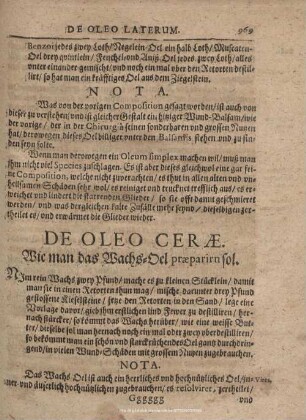 DE OLEO LATERUM. 969
Benzoi jedes zwey Loth/ Negelein-Oel ein halb Loth/ Muscaten-
Oel drey quintlein/ Fenchel und Anis-Oel jedes zwey Loth/ alles
unter einander gemischt/ und noch ein mal über den Retorten destil-
lirt/ so hat man ein kräfftiges Oel aus dem Ziegelstein.
NOTA.
Was von der vorigen Composition gesagt worden/ ist auch von
dieser zu verstehen/ und ist gleicher Gestalt ein hitziger Wund-Balsam/ wie
der vorige/ der in der Chirurg. seinen sonderbaren und grossen Nutzen
hat/ derowegen dieses Oel billiger unter den Balsamis stehen und zu fin-
den seyn solte.
Wenn man derowegen ein Oleum simplex machen wil/ muß man
ihm nicht viel Species zuschlagen. Es ist aber dieses gleichwol eine gar fei-
ne Composition, welche nicht zu verachten/ es thut in allen alten und un-
heilsamen Schäden sehr wol/ es reiniget und trucknet trefflich aus/ es er-
weichet und lindert die starrenden Glieder/ so sie offt damit geschmieret
werden/ und da dergleichen kalte Zufälle mehr seynd/ dieselbigen zer-
theilet es/ und erwärmet die Glieder wieder.
DE OLEO CERÆ.
Wie man das Wachs-Oel præparirn sol.
NIm rein Wachs zwey Pfund/ mache es zu kleinen Stücklein/ damit
man sie in einen Retorten thun mag/ mische darunter drey Pfund
gestossene Kieselsteine/ setze den Retorten in den Sand/ lege eine
Vorlage davor/ gieb ihm erstlichen lind Fewer zu destilliren/ her-
nach stärcker/ so kommt das Wachs herüber/ wie eine weisse But-
ter/ dieselbe sol man hernach noch ein mal oder zwey uberdestilliren/
so bekommt man ein schön und starckriechendes Oel gantz durchdrin-
gend/ in vielen Wund-Schäden mit grossem Nutzen zugebrauchen.
NOTA.
Das Wachs-Oel ist auch ein herrliches und hochnützliches Oel/
und äuserlich hochnützlichen zugebrauchen/ es resolviret, zertheilet/
Gggggg und